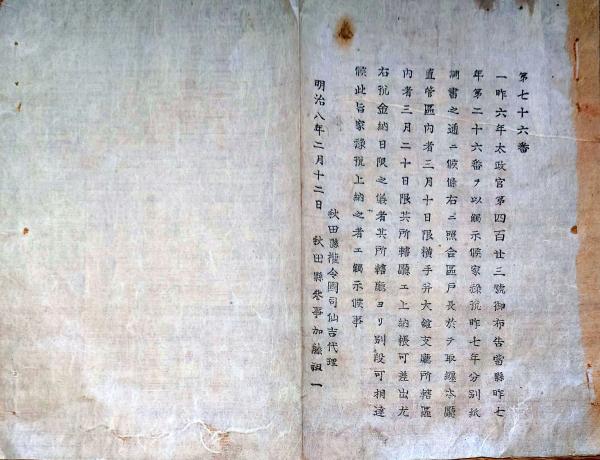 第七十六番
一昨六年太政官第四百廿三號御布告當縣昨七
年第二十六番ヲ以觸示候家祿税昨七年分別紙
調書之通ニ候條右ニ照合區戸長於テ取纒本廳
直管區內者三月十日限横手并大館支廳所轄區
內者三月二十日限其所轄廳エ上納帳可差出尤
右税金納日限之儀者其所轄廳ヨリ別段可相達
候此旨家祿税上納之者エ觸示候事
秋田縣權令國司仙吉代理
明治八年二月十二日 秋田縣參事加藤祖一